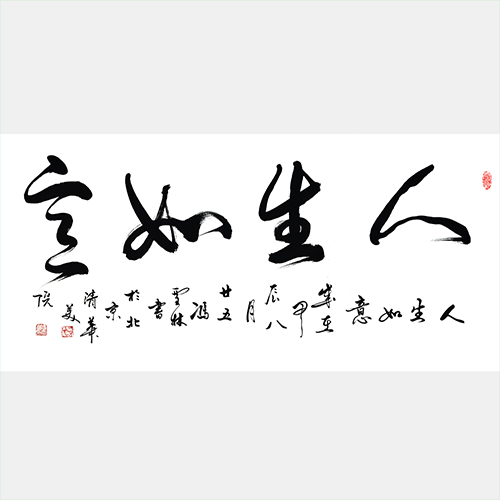 人生如意
人生如意歲在甲辰八月廿五馮雲林書於北京清華美院